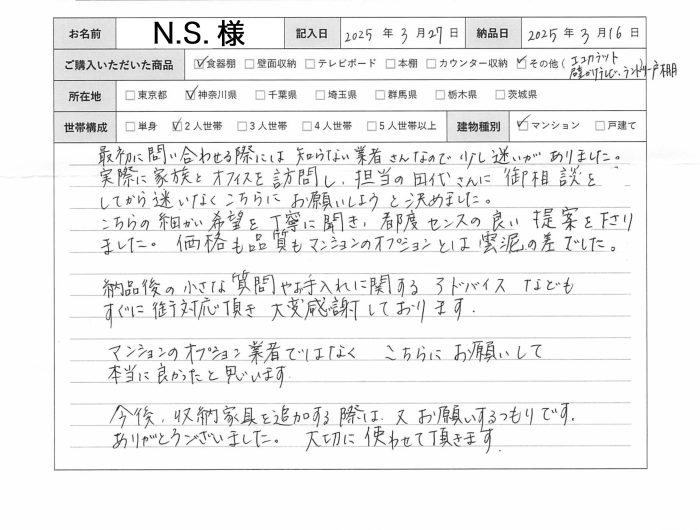 お名前 N.S. 様 記入日 2025 年 3 月 27 日 納品日 2025 年 3 月 16 日
ご購入いただいた商品 ☑食器棚 □壁面収納 □テレビボード □本棚 □カウンター収納 ☑その他( エコカラット
壁かけテレビ、ランドリー戸棚
所在地 □東京都 ☑神奈川県 □千葉県 □埼玉県 □群馬県 □栃木県 □茨城県
世帯構成 □単身 ☑2人世帯 □3人世帯 □4人世帯 □5人世帯以上 建物種別 ☑マンション □戸建て
最初に問い合わせる際には 知らない業者さんなので 少し迷いが ありました。
実際に家族と オフィスを 訪問し、担当の 田代さんに 御相談を
してから迷いなく こちらに お願いしようと 決めました。
こちらの 細かい 希望を 丁寧に聞き、都度センスの良い 提案を下さり
ました。 価格も品質もマンションのオプションとは 雲泥の差でした。
納品後の小さな 質問やお手入れに関する アドバイス なども
すぐに御対応頂き 大変感謝しております.
マンションのオプション業者ではなく こちらに お願いして
本当に良かったと思います.
今後、収納家具を追加する際は、又 お願いするつもりです.
ありがとうございました。 大切に使わせて頂きます.